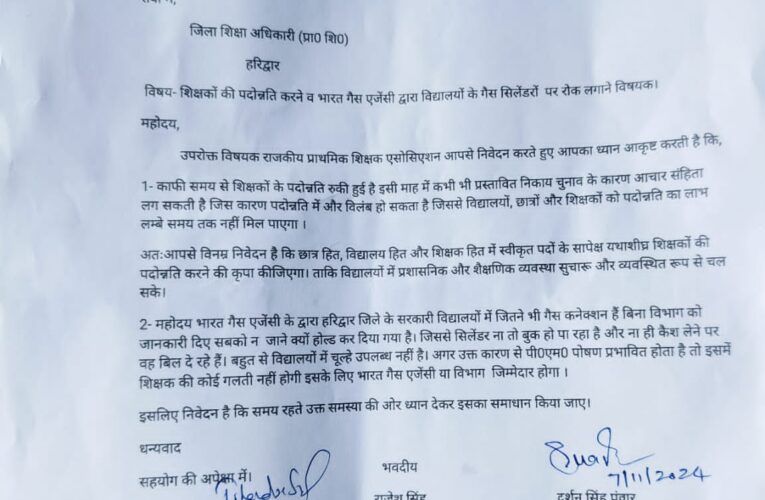 जिला शिक्षा अधिकारी (प्रा0 शि0)
हरिद्वार
विषय- शिक्षकों की पदोन्नति करने व भारत गैस एजेंसी द्वारा विद्यालयों के गैस सिलेंडरों पर रोक लगाने विषयक।
महोदय,
उपरोक्त विषयक राजकीय प्राथमिक शिक्षक एसोसिएशन आपसे निवेदन करते हुए आपका ध्यान आकृष्ट करती है कि,
1- काफी समय से शिक्षकों के पदोन्नति रुकी हुई है इसी माह में कभी भी प्रस्तावित निकाय चुनाव के कारण आचार संहिता
लग सकती है जिस कारण पदोन्नति में और विलंब हो सकता है जिससे विद्यालयों, छात्रों और शिक्षकों को पदोन्नति का लाभ
लम्बे समय तक नहीं मिल पाएगा ।
अतःआपसे विनम्र निवेदन है कि छात्र हित, विद्यालय हित और शिक्षक हित में स्वीकृत पदों के सापेक्ष यथाशीघ्र शिक्षकों की
पदोन्नति करने की कृपा कीजिएगा। ताकि विद्यालयों में प्रशासनिक और शैक्षणिक व्यवस्था सुचारू और व्यवस्थित रूप से चल
सके।
2- महोदय भारत गैस एजेंसी के द्वारा हरिद्वार जिले के सरकारी विद्यालयों में जितने भी गैस कनेक्शन हैं बिना विभाग को
जानकारी दिए सबको न जाने क्यों होल्ड कर दिया गया है। जिससे सिलेंडर ना तो बुक हो पा रहा है और ना ही कैश लेने पर
वह बिल दे रहे हैं। बहुत से विद्यालयों में चूल्हे उपलब्ध नहीं है। अगर उक्त कारण से पी0एम0 पोषण प्रभावित होता है तो इसमें
शिक्षक की कोई गलती नहीं होगी इसके लिए भारत गैस एजेंसी या विभाग जिम्मेदार होगा ।
इसलिए निवेदन है कि समय रहते उक्त समस्या की ओर ध्यान देकर इसका समाधान किया जाए।
धन्यवाद
भवदीय
7/11/2024
सहयोग की अपेक्षा में।
राजेश सिंह
दर्शन सिंह पंवार